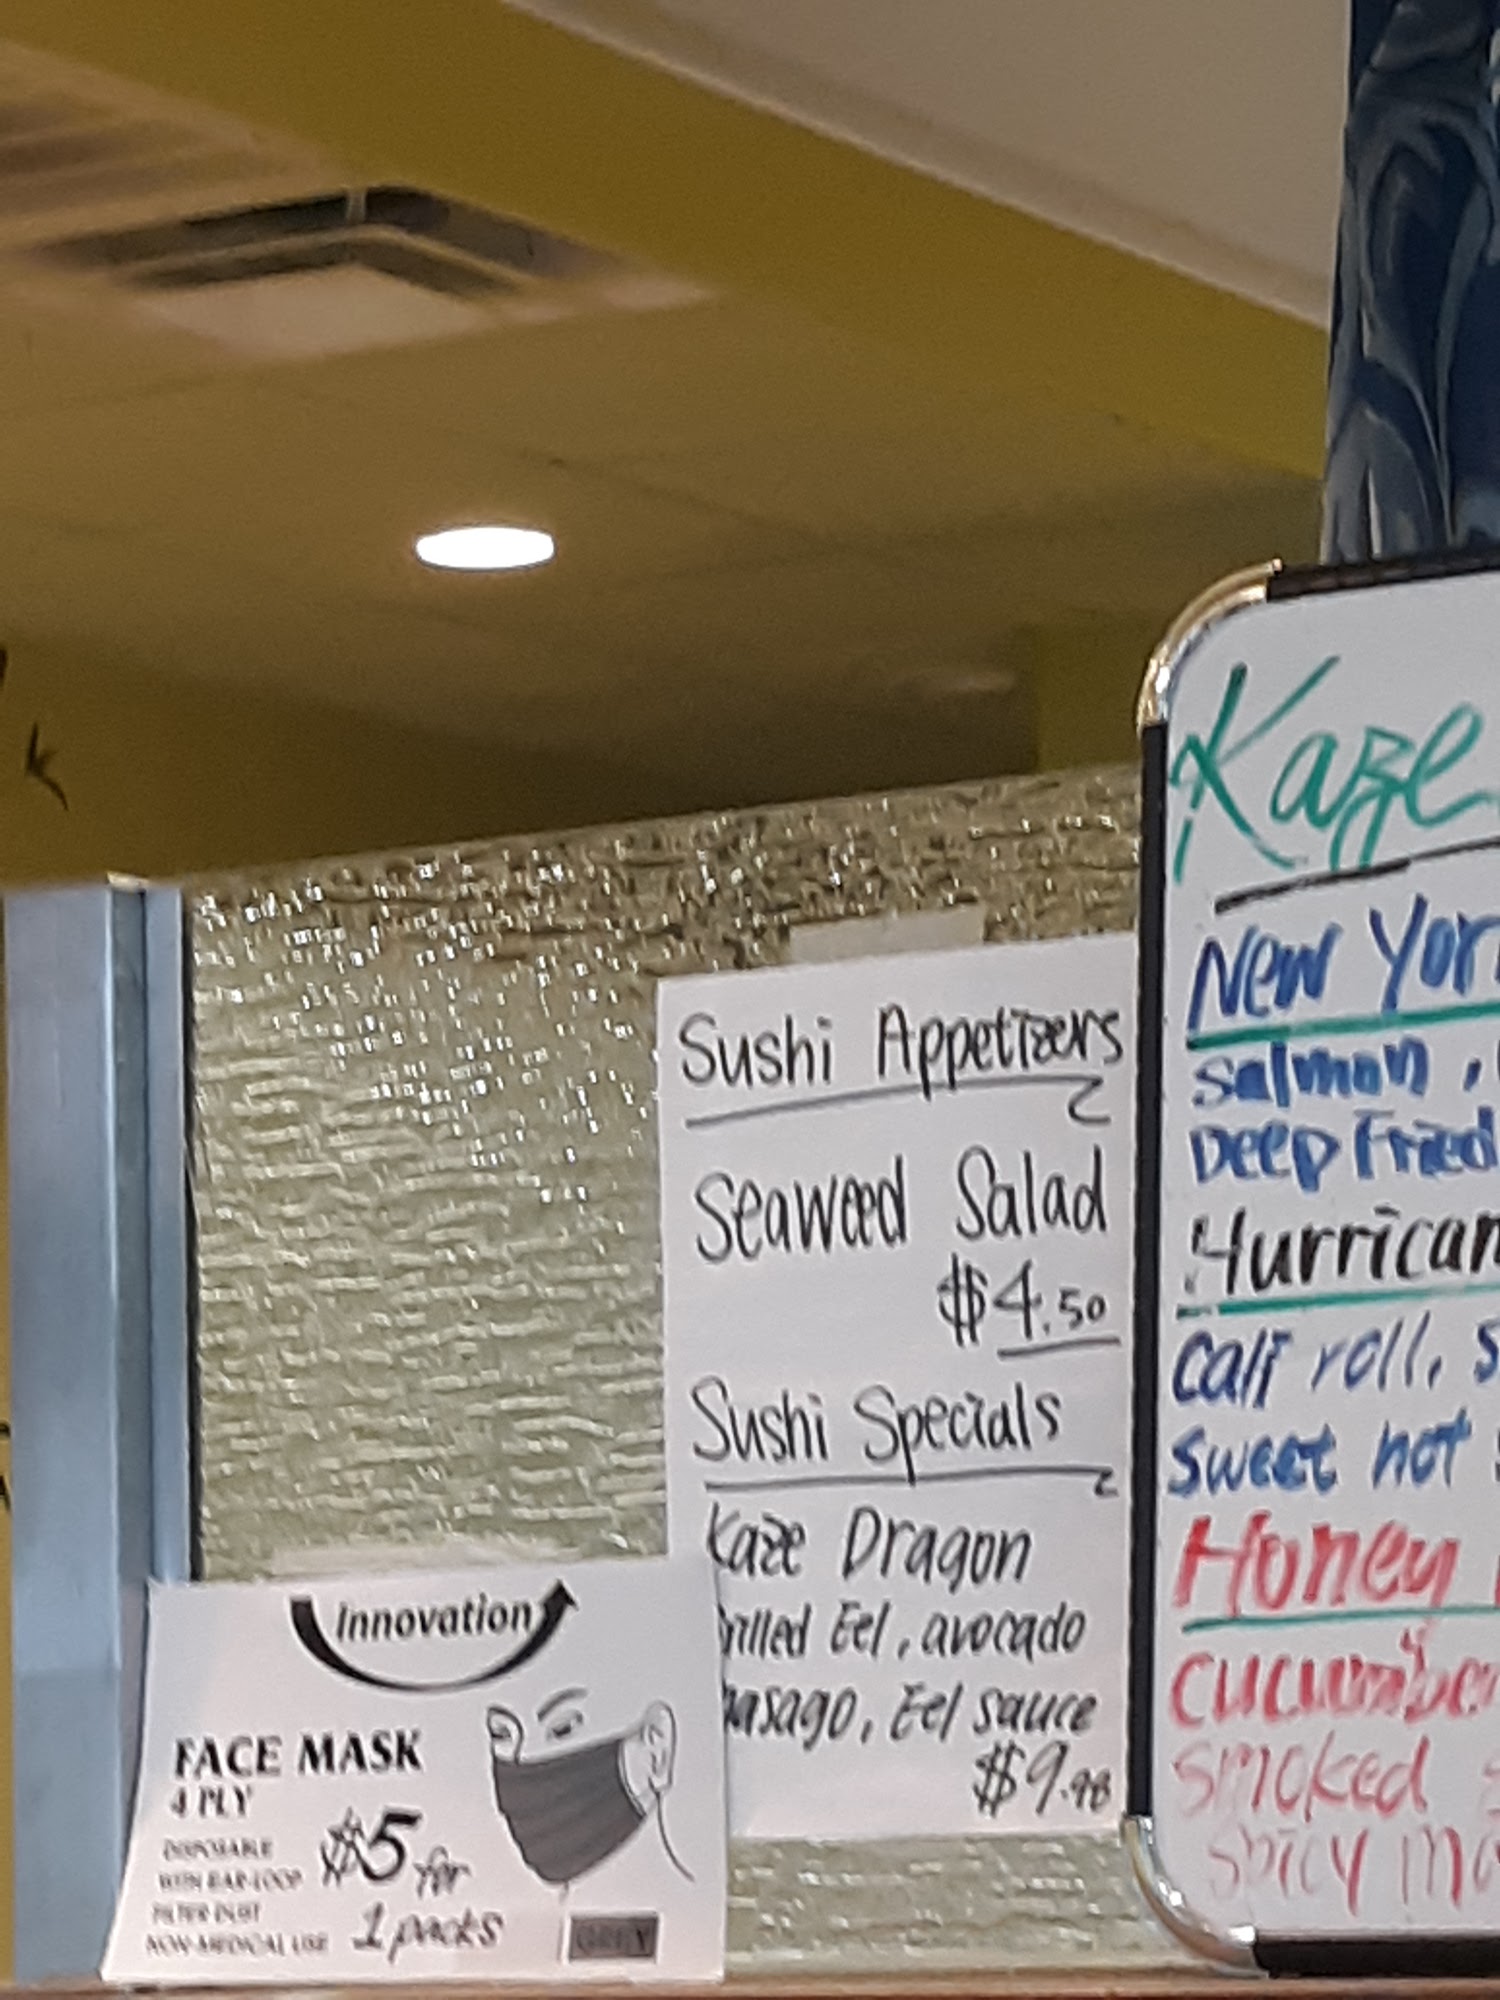 Sushi Appetizers
Seaweed Salad
$4.50
Sushi Specials
Kaze Dragon
rilled Eel, avocado
masago, Eel sauce
$9.98
innovation
FACE MASK
4 PLY
DISPOSABLE
WITH EAR-LOOP
FILTER DUST
NON-MEDICAL USE
$5 for
1 packs
GREY
Kaze
New Yor
Salmon,
Deep Fried
Hurrican
Cali roll, S
Sweet hot
Honey
Cucumber
Smoked
Spicy